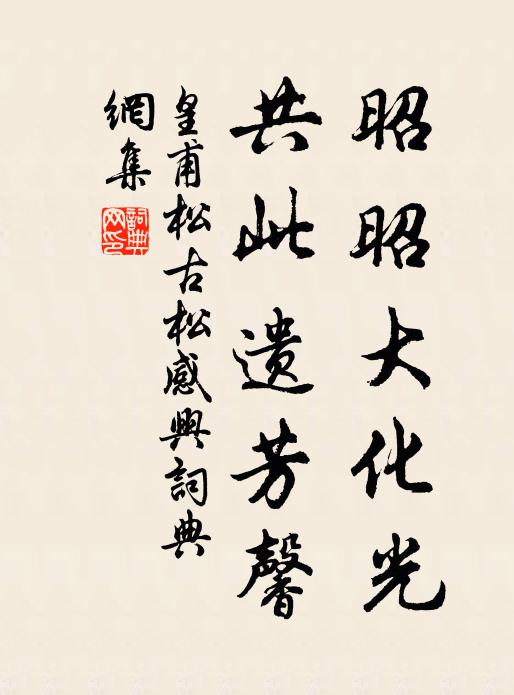 昭昭大化光
共此遗芳馨
皇甫松古松感興詞典
網集
詞典網印